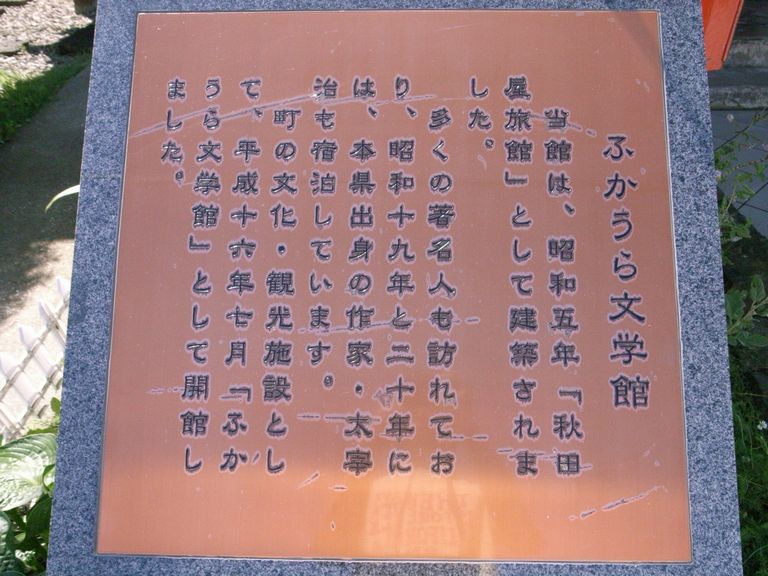 ふかうら文学館
当館は、昭和五年「秋田
屋旅館」として建築されま
した。
多くの著名人も訪れてお
り、昭和十九年と二十年に
は、本県出身の作家・太宰
治も宿泊しています。
町の文化・観光施設とし
て、平成十六年七月「ふか
うら文学館」として開館し
ました。